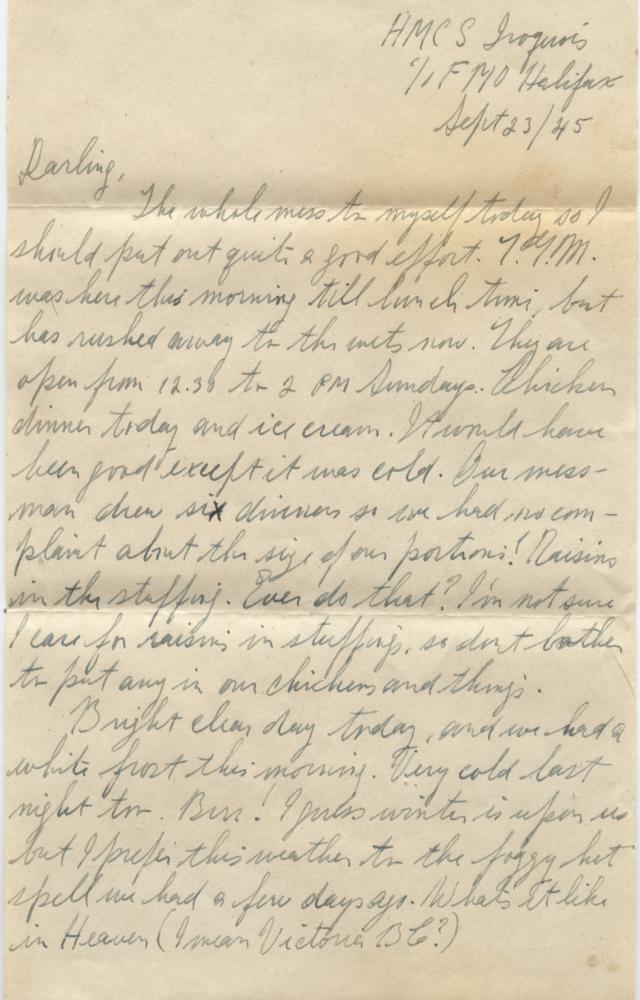 HMCS Iroquois
c/o FMO Halifax
Sept 23/45
Darling,
The whole mess to myself today so I
should put out quite a good effort.
was here this morning till lunch time, but
has rushed away to the wets now. They are
open from 12.30 to 2 PM Sundays. Chicken
dinner today and ice cream. It would have
been good except it was cold. Our mess-
man drew six dinners so we had no com-
plaint about the size of our portions! Raisins
in the stuffing. Ever do that? I'm not sure
I care for raisins in stuffings, so dont bother
to put any in our chickens and things.
Bright clear day today, and we had a
white frost this morning. Very cold last
night too. Brrr! I guess winter is upon us
but I prefer this weather to the foggy hot
spell we had a few days ago. Whats it like
in Heaven (I mean Victoria BC?)